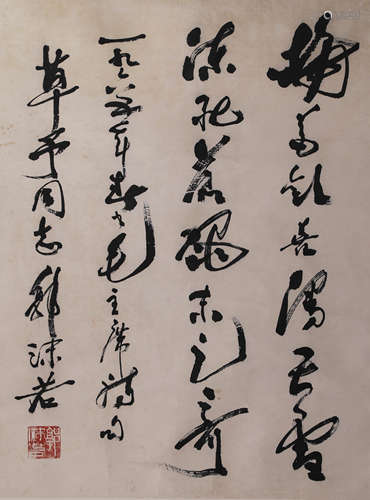 梅花欢喜漫天雪
冻死苍蝇未足奇
一九六年书毛主席诗句
草予同志 郭沫若